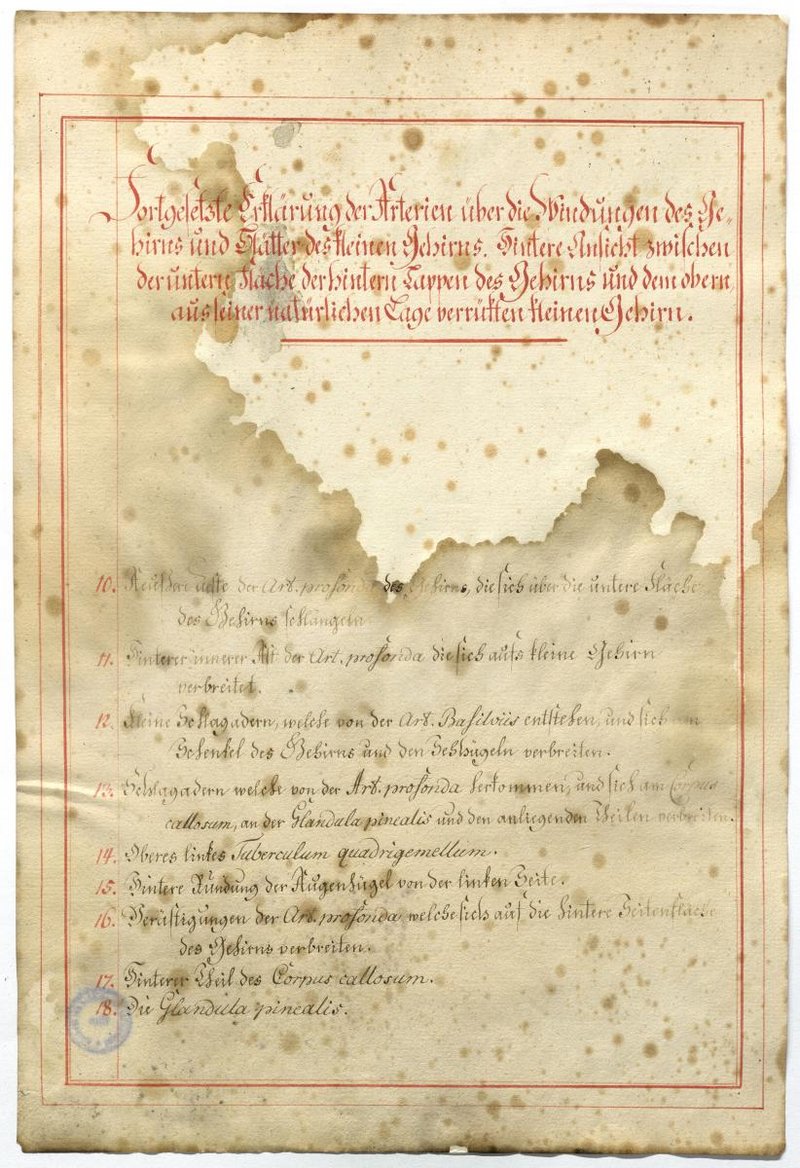 Fortgesetzte Erklärung der Arterien über die Windungen des Ge-
hirns und Blätter des kleinen Gehirns. Hintere Ansicht zwischen
der untern Fläche der hintern Lappen des Gehirns und dem obern,
aus seiner natürlichen Lage verrükten kleinen Gehirn.
10. Aeußere Aeste der Art. profonda des Gehirns, die sich über die untere Fläche
des Gehirns schlängeln.
11. Hinterer innerer Ast der Art. profonda die sich aufs kleine Gehirn
verbreitet.
12. Kleine Schlagadern, welche von der Art. Basilviis entstehen, und sich am
Schenkel des Gehirns und den Sehhügeln verbreiten.
13. Schlagadern welche von der Art. profonda herkommen, und sich am Corpus
callosum, an der Glandula pinealis und den anliegenden Theilen verbreiten.
14. Oberes linkes Tuberculum quadrigemellum.
15. Hintere Rundung der Augenhügel von der linken Seite.
16. Verästigungen der Art. profonda, welche sich auf die hintere Seitenfläche
des Gehirns verbreiten.
17. Hinterer Theil des Corpus callosum.
18. Die Glandula pinealis.